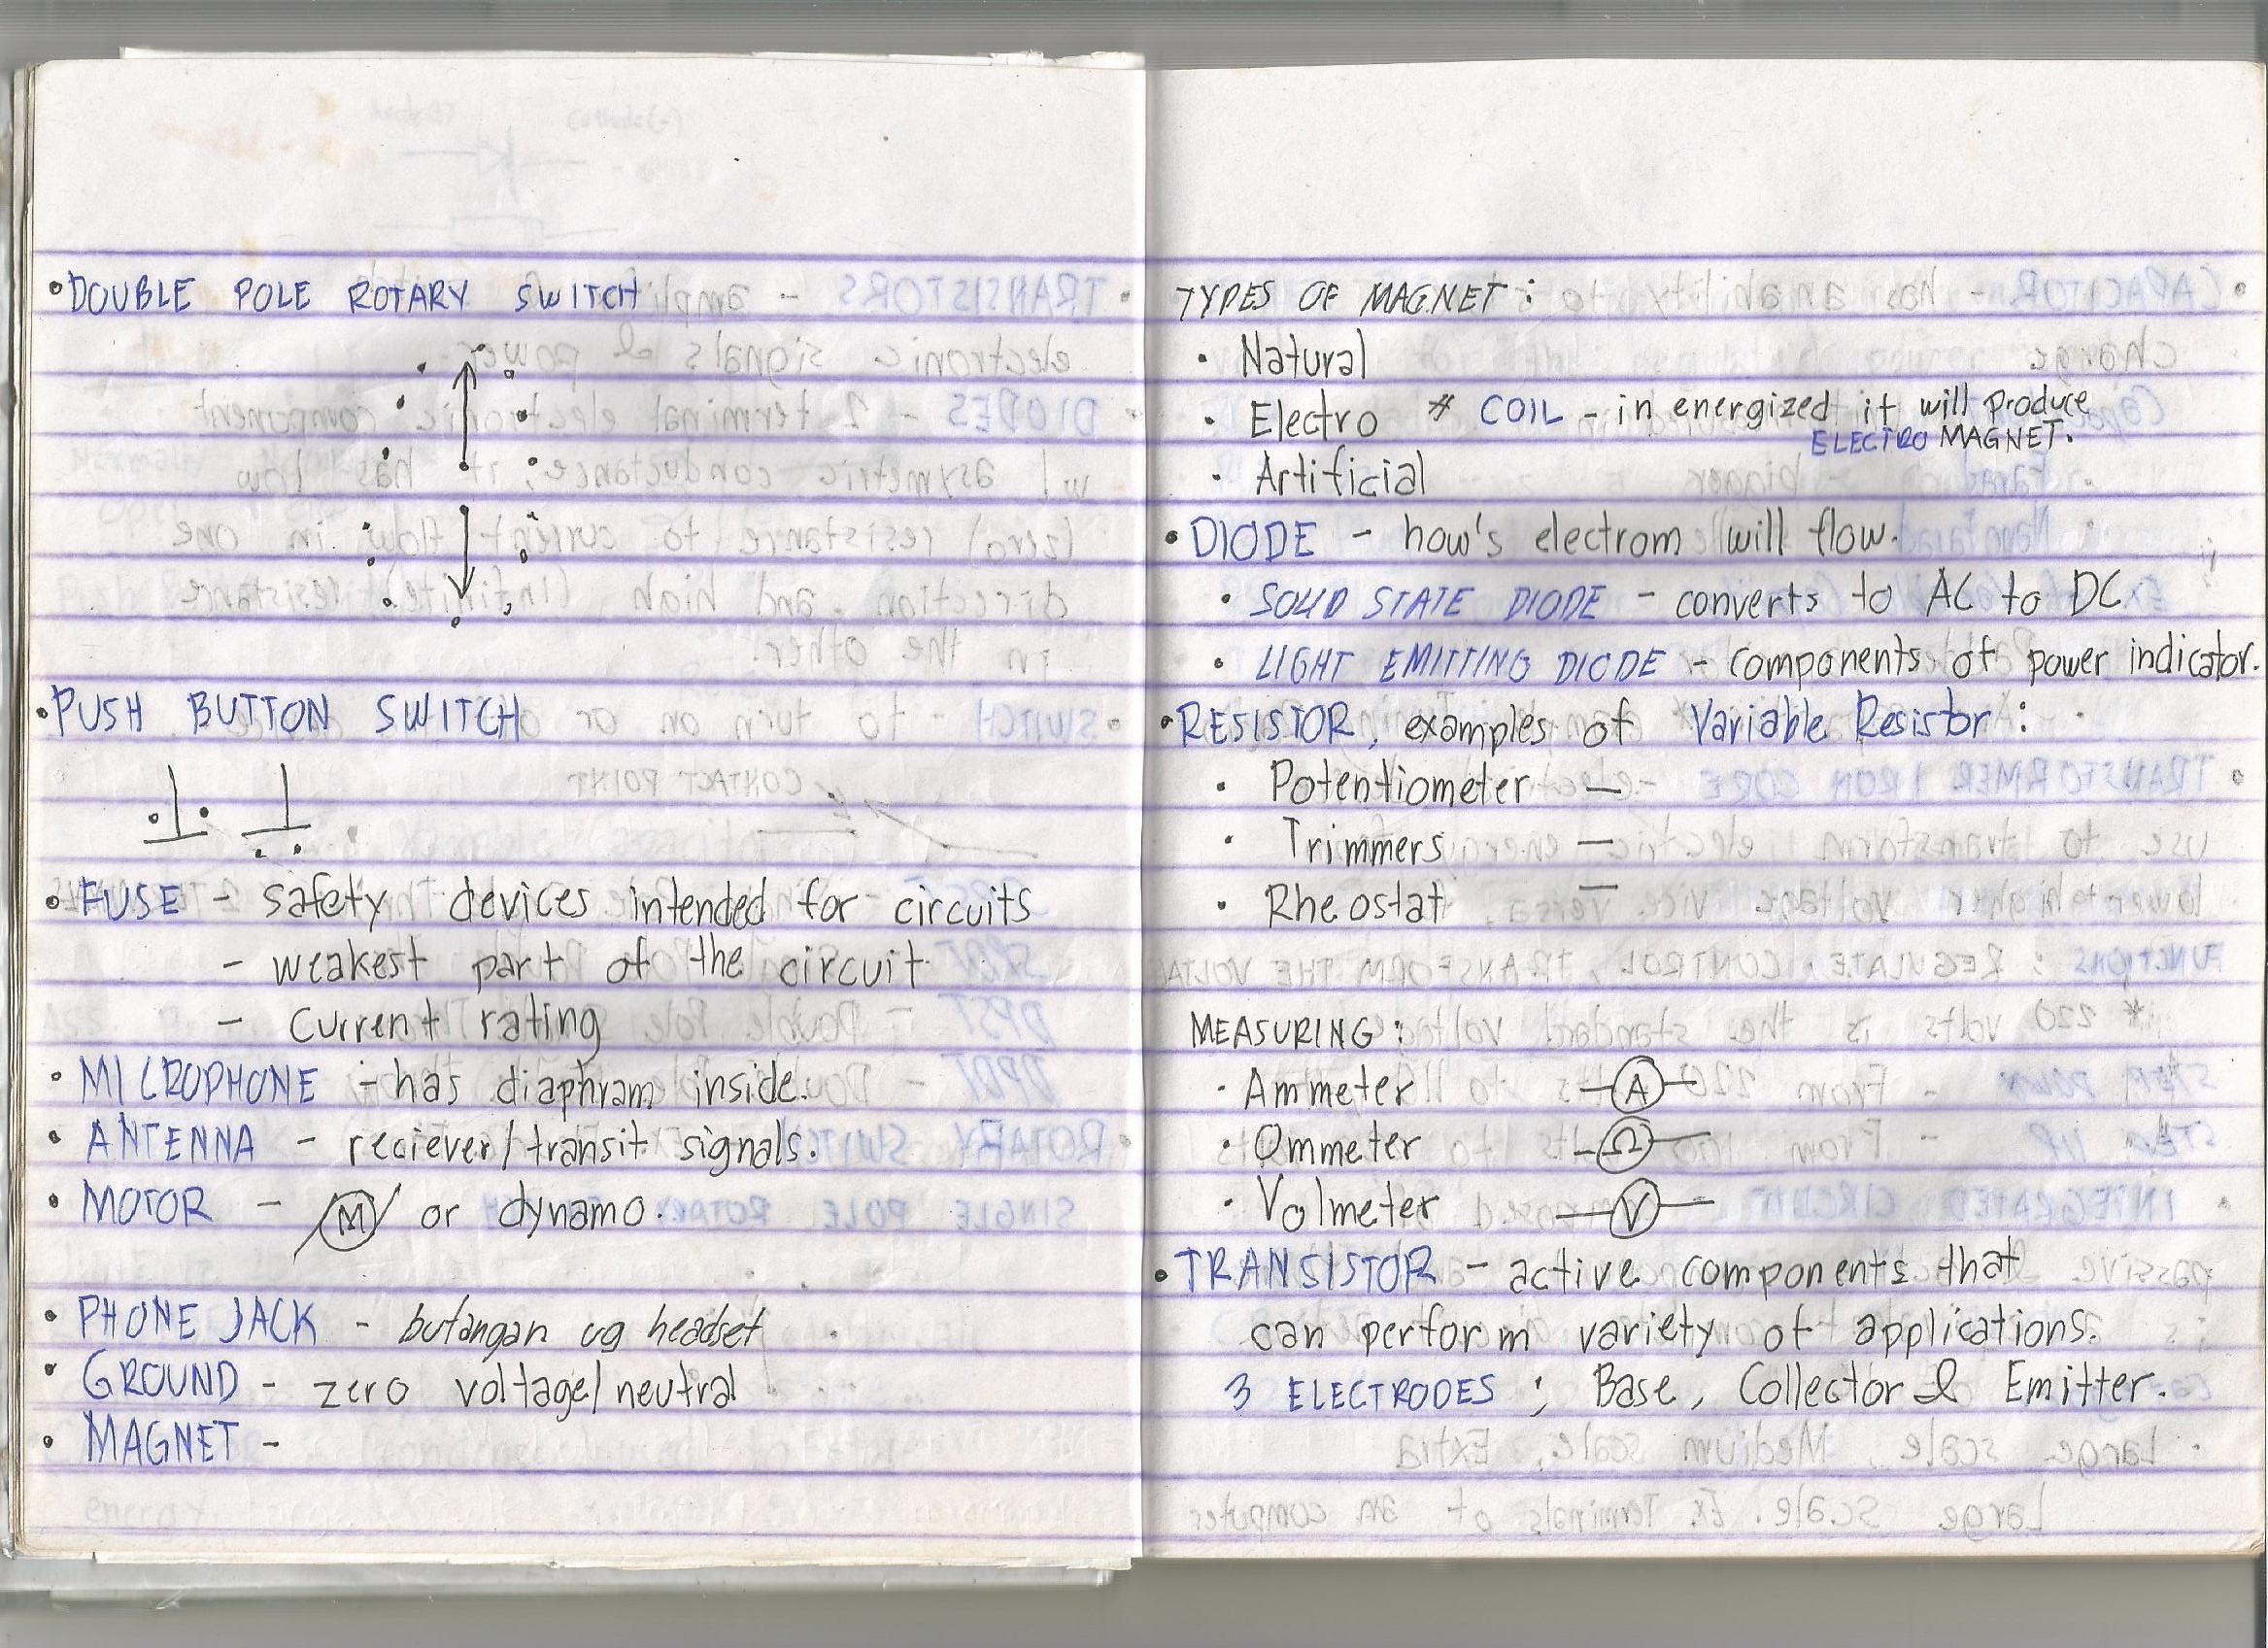 •DOUBLE POLE ROTARY SWITCH
•PUSH BUTTON SWITCH
•FUSE - safety devices intended for circuits
- weakest part of the circuit
- current rating
•MICROPHONE - has diaphram inside.
•ANTENNA - reciever/transit signals.
•MOTOR - M or dynamo.
•PHONE JACK - butangan ug headset
•GROUND - zero voltage/neutral
•MAGNET -
TYPES OF MAGNET:
•Natural
•Electro * COIL - in energized it will produce
ELECTRO MAGNET.
•Artificial
•DIODE - how's electrom will flow.
•SOLID STATE DIODE - converts to AC to DC
•LIGHT EMITTING DIODE - components of power indicator.
•RESISTOR, examples of Variable Resistor:
•Potentiometer —
•Trimmers —
•Rheostat —
MEASURING:
•Ammeter A
•Ommeter Ω
•Volmeter V
•TRANSISTOR - active components that
can perform variety of applications.
3 ELECTRODES; Base, Collector & Emitter.